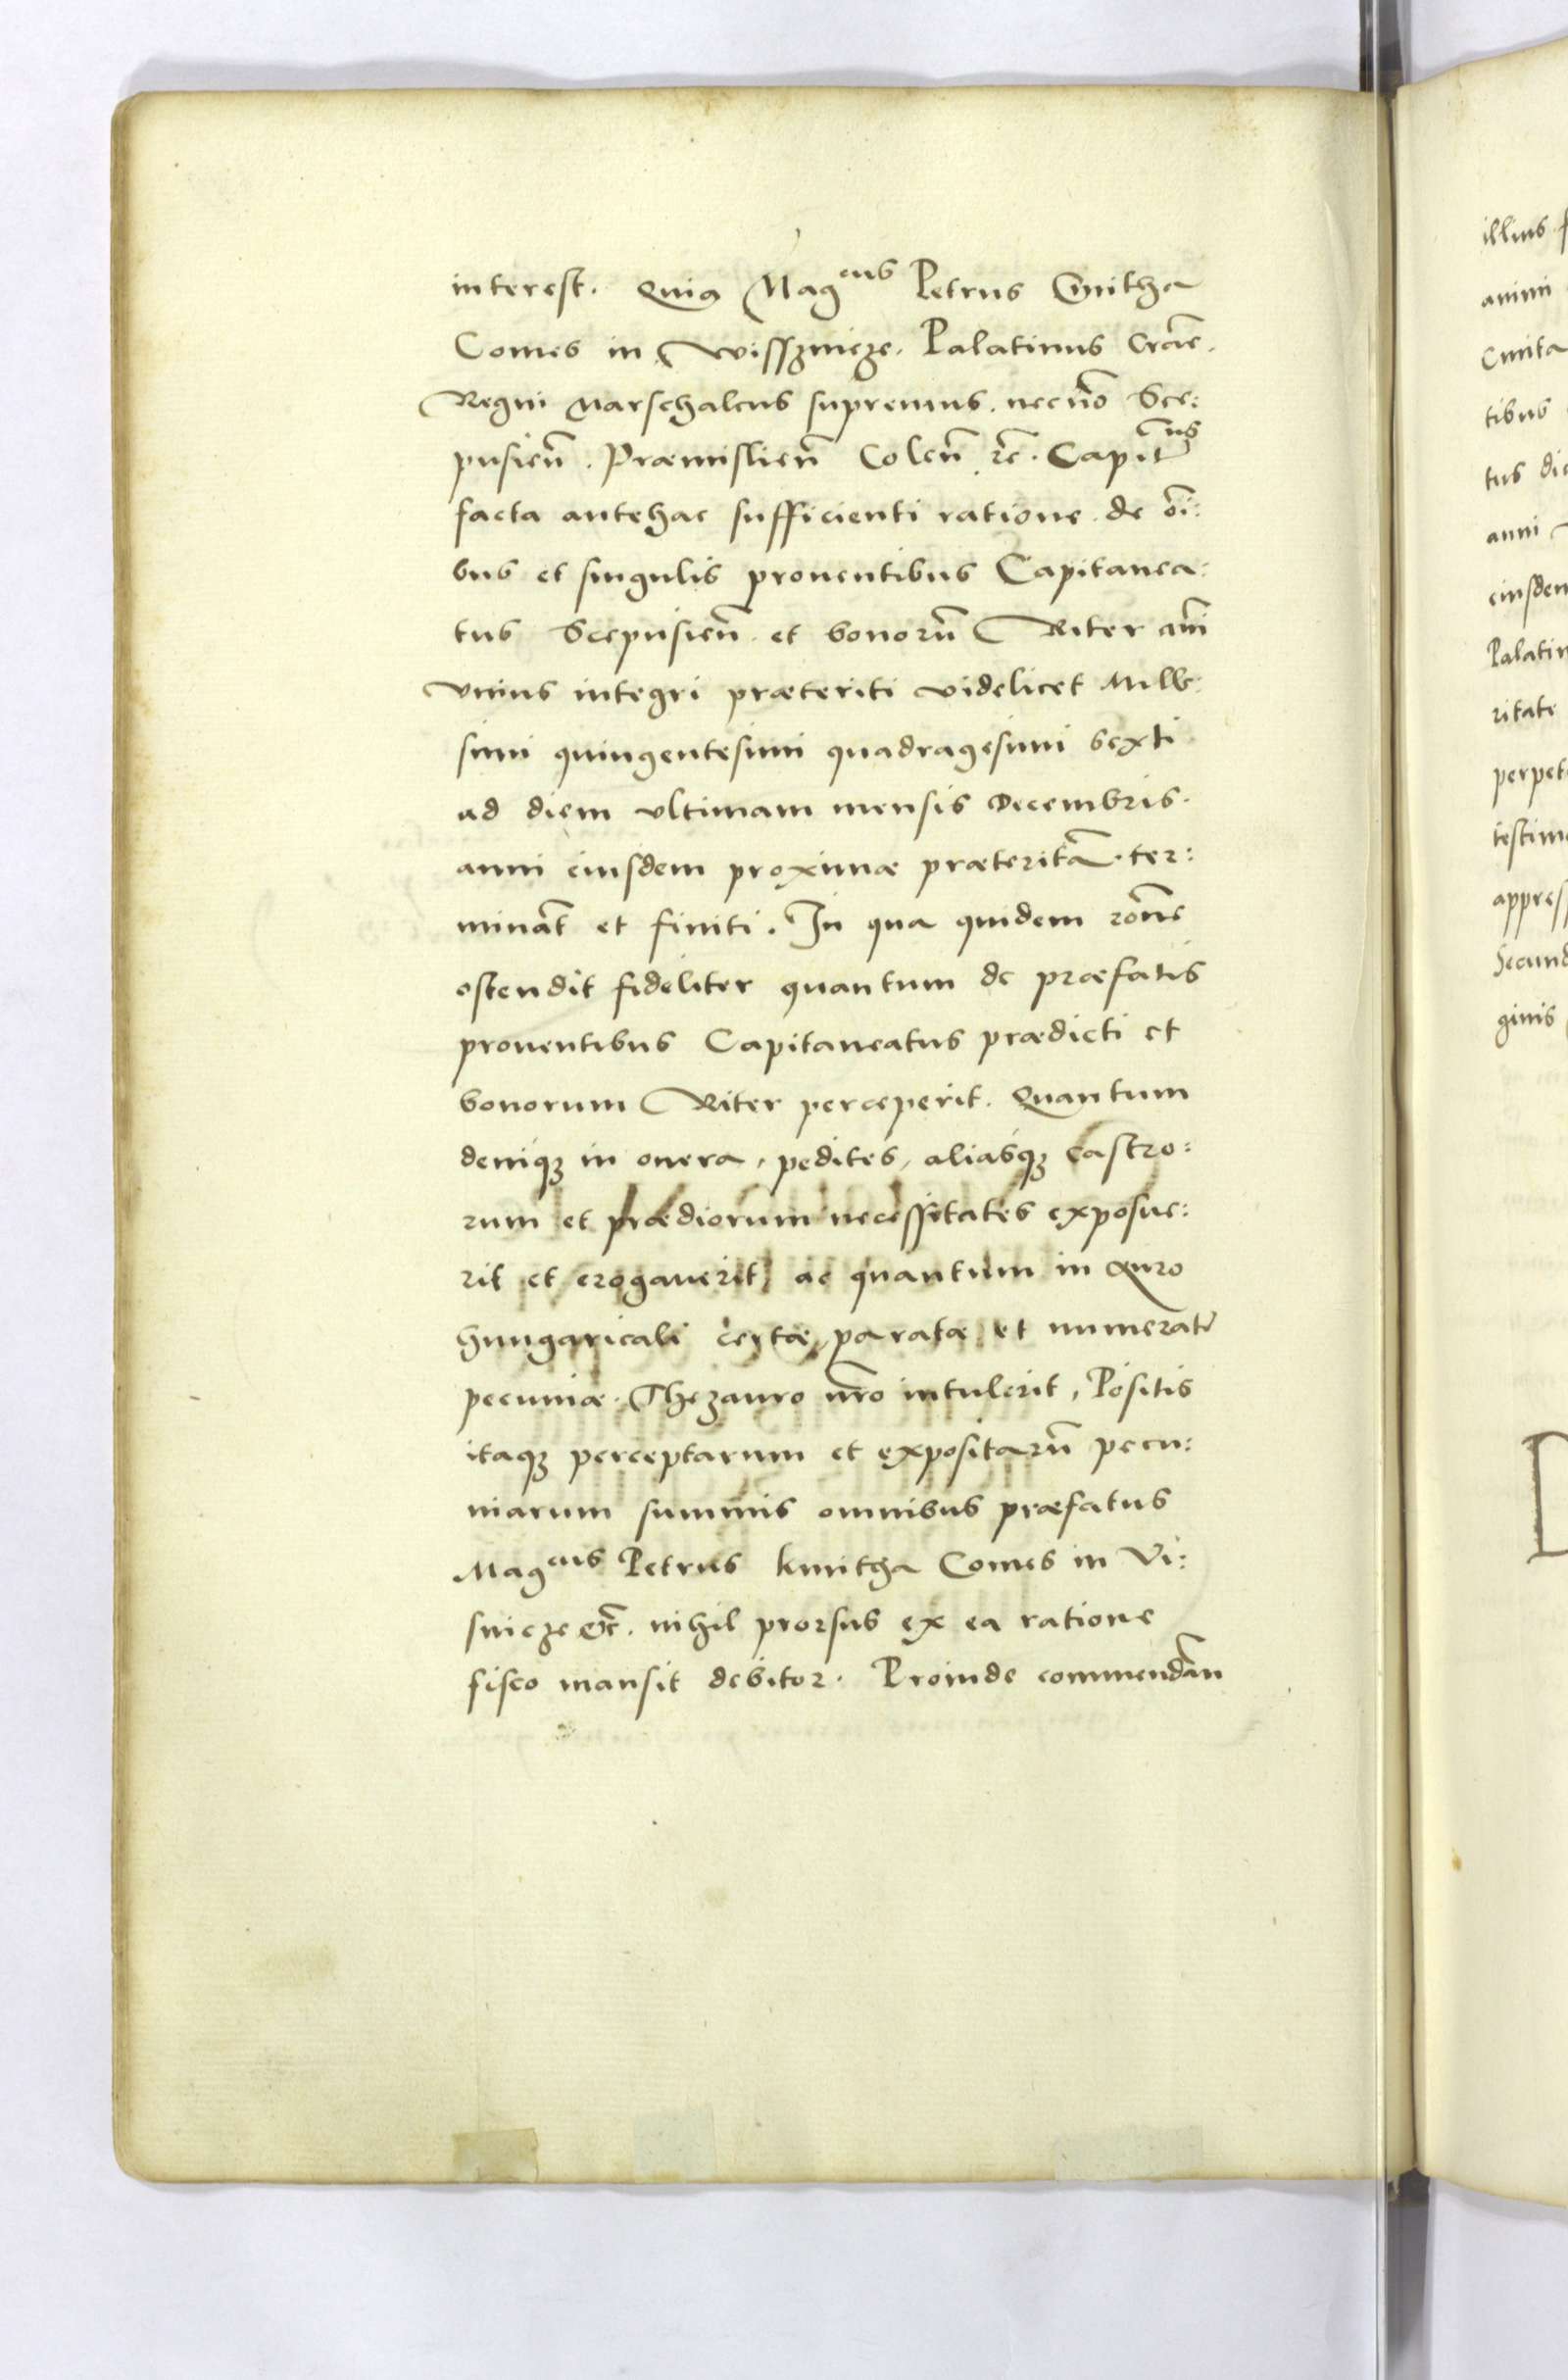 interest. Quia Mag^cus Petrus Cmitha
Comes in Wissznicze. Palatinus Crac̃.
Regni Marschalcus supremus. necno͂ Sce:
pusien̄. Præmislien̄ Colen̄ rc̄. Capit^nus
facta antehac sufficienti ratione de o͞i:
bus et singulis prouentibus Capitanea:
tus Scepusien̄. et bonorū Riter an̄i
vnius integri præteriti videlicet Mille:
simi quingentesimi quadragesimi sexti
ad diem vltimam mensis Decembris.
anni eiusdem proximæ præteritā. ter:
minat̄ et finiti. In qua quidem ron̄e
ostendit fideliter quantum de præfatis
prouentibus Capitaneatus prædicti et
bonorum Riter perceperit. Quantum
deniqꝫ in onera, pedites, aliasqꝫ castro:
rum et prædiorum necessitates exposue:
rit et erogauerit, ac quantum in auro
hungaricali certæ, paratæ et numerate
pecuniæ. Thezauro n̄ro intulerit, Positis
itaqꝫ perceptarum et expositarū pecu:
niarum summis omnibus præfatus
Mag^cus Petrus kmitha Comes in Vi:
snicze &c̄. nihil prorsus ex ea ratione
fisco mansit debitor. Proinde commendān
illius
animi
Cmita
tibus
tus
anni
eiusdem
Palatin
ritate
perpet
testim
appress
Secund
ginis